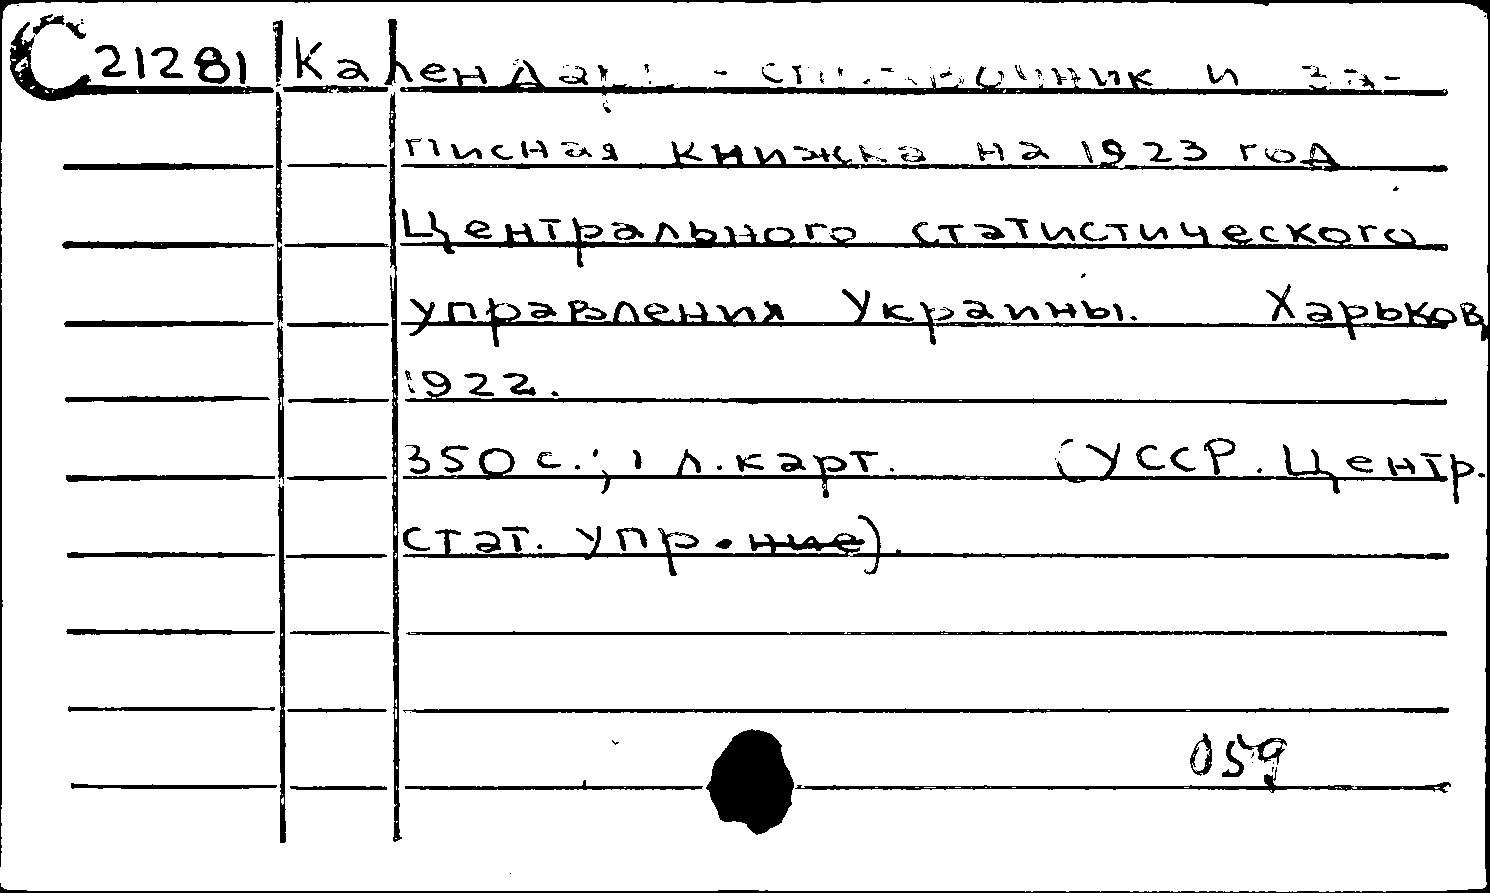 С21281 Календарь-справочник и за-
писная книжка на 1923 год
Центрального статистического
управления Украины. Харьков,
1922.
350 с.; 1 л. карт. (УССР. Центр.
стат. упр. ние).
059